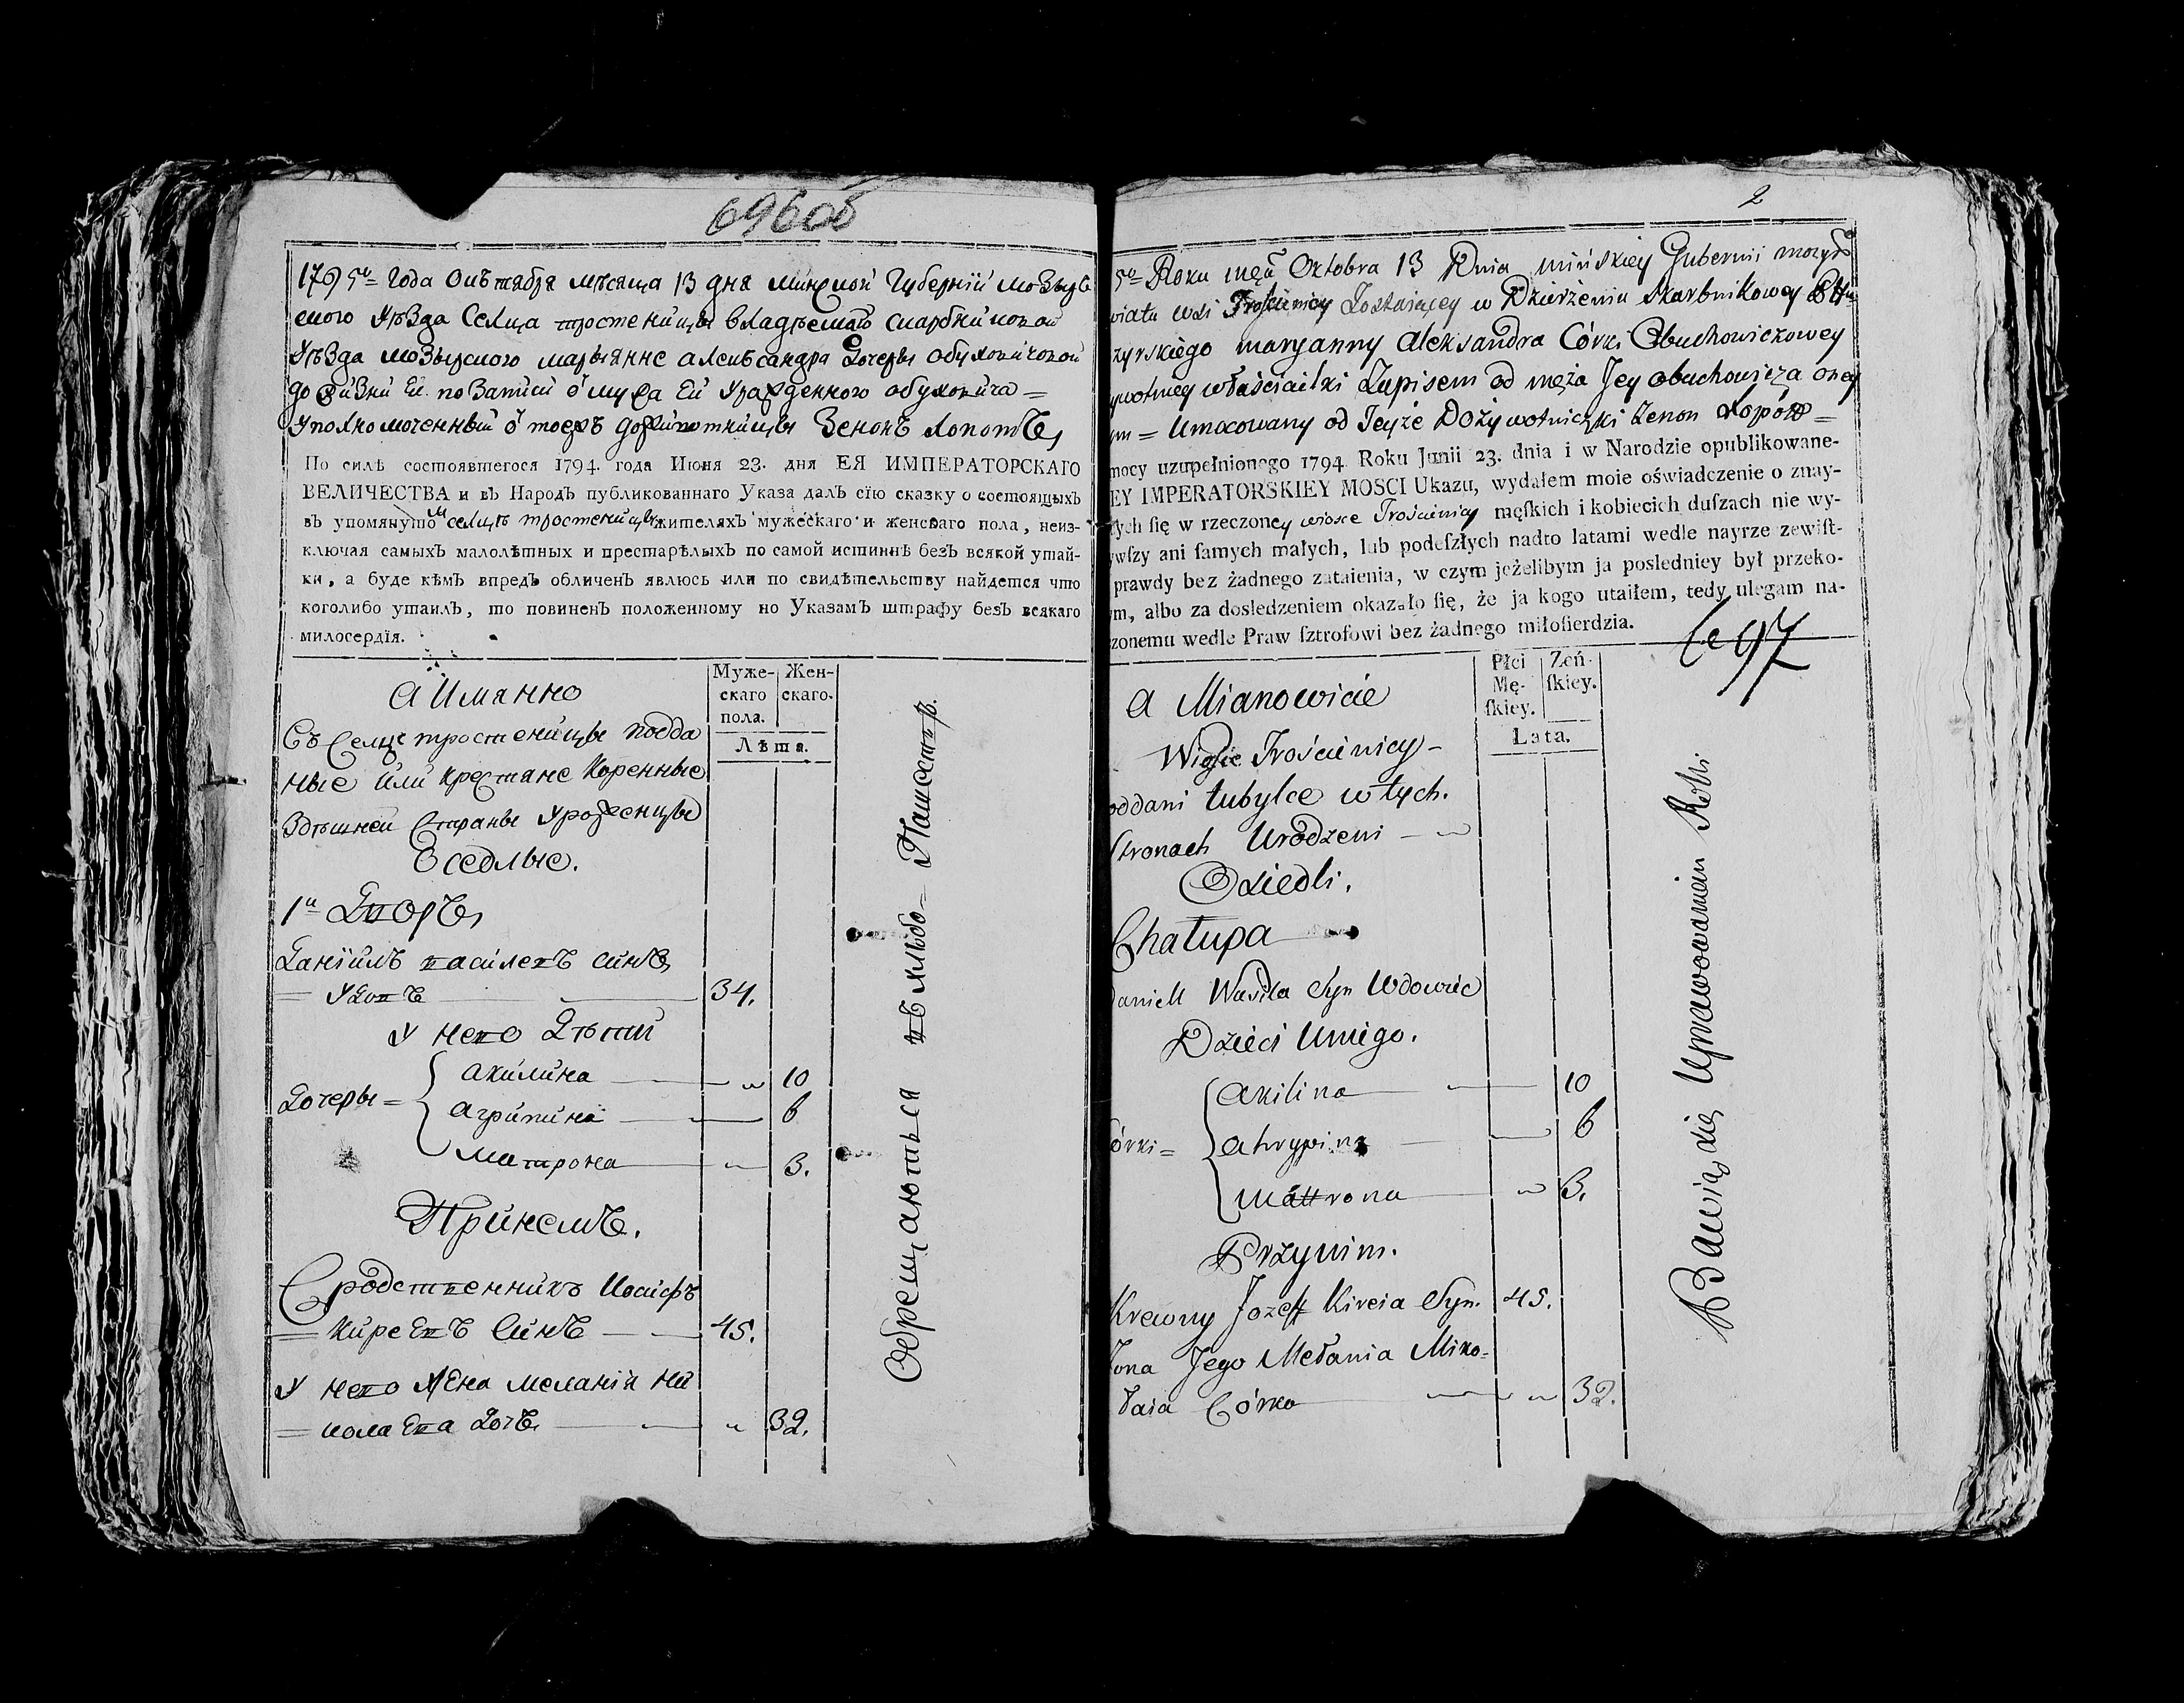 696об
1795го Года Октября мѣсяца 13 дня минской Губерніи мозыр
ского уѣзда Селца тростеницы владѣемого скарбниковой
уѣзда мозырского марыянне александра дочеры обуховичовой
до жизни Ей по записи от мужа Ей урожденного обуховича =
уполномоченный от тоежъ доживотницы Зенонъ лопотъ
По силѣ состоявшегося 1794. года Июня 23. дня ЕЯ ИМПЕРАТОРСКАГО
ВЕЛИЧЕСТВА и въ Народъ публикованнаго Указа далъ сію сказку о состоящыхъ
въ упомянутом селцѣ тростеницы жителяхъ мужескаго и женскаго пола, неиз-
ключая самыхъ малолѣтныхъ и престарѣлыхъ по самой истиннѣ безъ всякой утай-
ки, а буде кѣмъ впредь обличенъ явлюсь или по свидѣтельству найдется что
коголибо утаилъ, то повиненъ положенному по Указамъ штрафу безъ всякаго
милосердія.
а Имянно
Муже-
скаго
пола.
Жен-
скаго.
Лѣта.
Въ Селце тростеницы подда
ные или крестяне коренные
Здѣшней Страны урожесицы
Оседлые.
1й Дворъ
Даніилъ василевъ синъ
= удовъ 34.
у него Дѣти
Дочеры =
акилина 10
агрипина 6
матрона 3.
Принемъ.
Сродственникъ Иосифъ
= киреевъ Синъ 45.
у него жена меланія ни
= колаева Дочъ 32.
Обрещаються въ хлѣбо-Пашеств.
2
5o Roku męca Oktobra 13 Dnia mińskiey Gubernii mozyr
wiatu wsi Trościenicy Zostaiącey w Dzierżeniu Skarbnikowey Pttu
zyrskiego maryanny Aleksandra Córki Obuchowiczowey
ywotney właścicielki Zapisem od męża Jey obuchowicza oney
ym = Umocowany od Teyże Dożywotniczki Zenon Łopott =
mocy uzupełnionego 1794 Roku Junii 23. dnia i w Narodzie opublikowane-
EY IMPERATORSKIEY MOSCI Ukazu, wydałem moie oświadczenie o znay-
ych ſię w rzeczoney wiosce Trościenicy męſkich i kobiecich duſzach nie wy-
wſzy ani ſamych małych, lub podeſzłych nadto latami wedle nayrze zewiſt-
prawdy bez żadnego zataienia, w czym jeżelibym ja posledniey był przeko-
m, albo za dosledzeniem okazało ſię, że ja kogo utaiłem, tedy ulegam na-
zonemu wedle Praw ſztrofowi bez żadnego miłoſierdzia.
697
a Mianowicie
Płci
Mę-
ſkiey.
Zeń-
ſkiey.
Lata.
Wiosce Trościenicy -
oddani tubylce w tych.
Stronach Urodzeni
Osiedli.
Chałupa
Daniell Wasila Syn Wdowiec
Dzieci Uniego.
órki =
Akilina 10
Ahrypina 6
Mattrona 3.
Przynim.
Krewny Jozeff Kireia Syn. 45.
Zona Jego Mełania Miko-
łaia Córka 32.
Bawią się Uprawowaniem Roli.